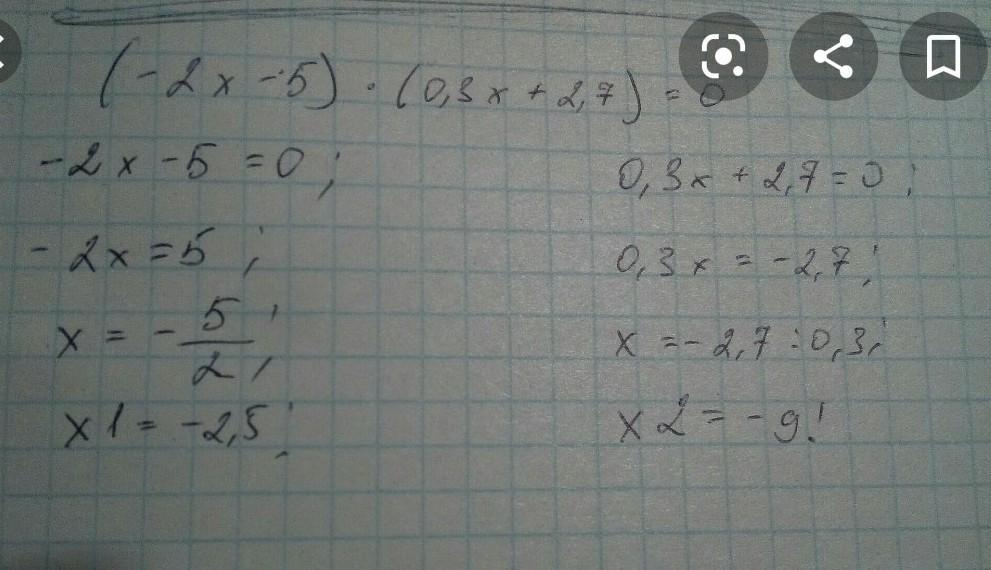 (-2x-5)·(0,3x+2,7)=0
-2x-5=0;
0,3x+2,7=0;
-2x=5;
0,3x=-2,7;
x=-5/2;
x=-2,7:0,3;
x1=-2,5;
x2=-9!